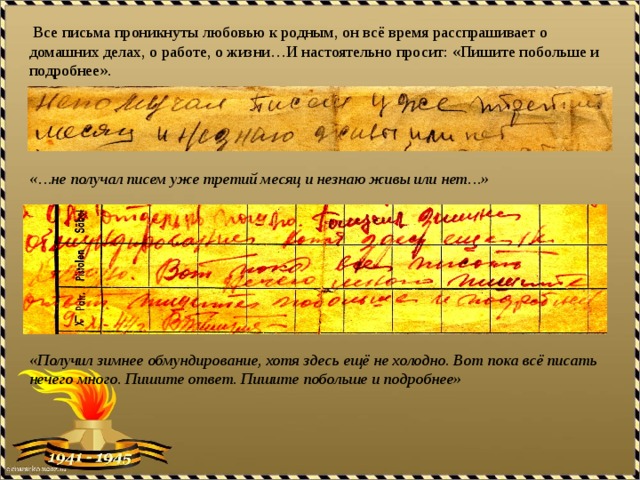 Все письма проникнуты любовью к родным, он всё время расспрашивает о
домашних делах, о работе, о жизни…И настоятельно просит: «Пишите побольше и
подробнее».
Неполучал писем уже третий
месяц и незнаю живы или нет
«…не получал писем уже третий месяц и незнаю живы или нет…»
Получил зимнее
обмундирование хотя здесь ещё не
холодно. Вот пока все писать
нечего много пишите
ответ пишите побольше и подробней
9-X-44г.
Pör. Pitolen Säbel
«Получил зимнее обмундирование, хотя здесь ещё не холодно. Вот пока всё писать
нечего много. Пишите ответ. Пишите побольше и подробнее»
1941 - 1945